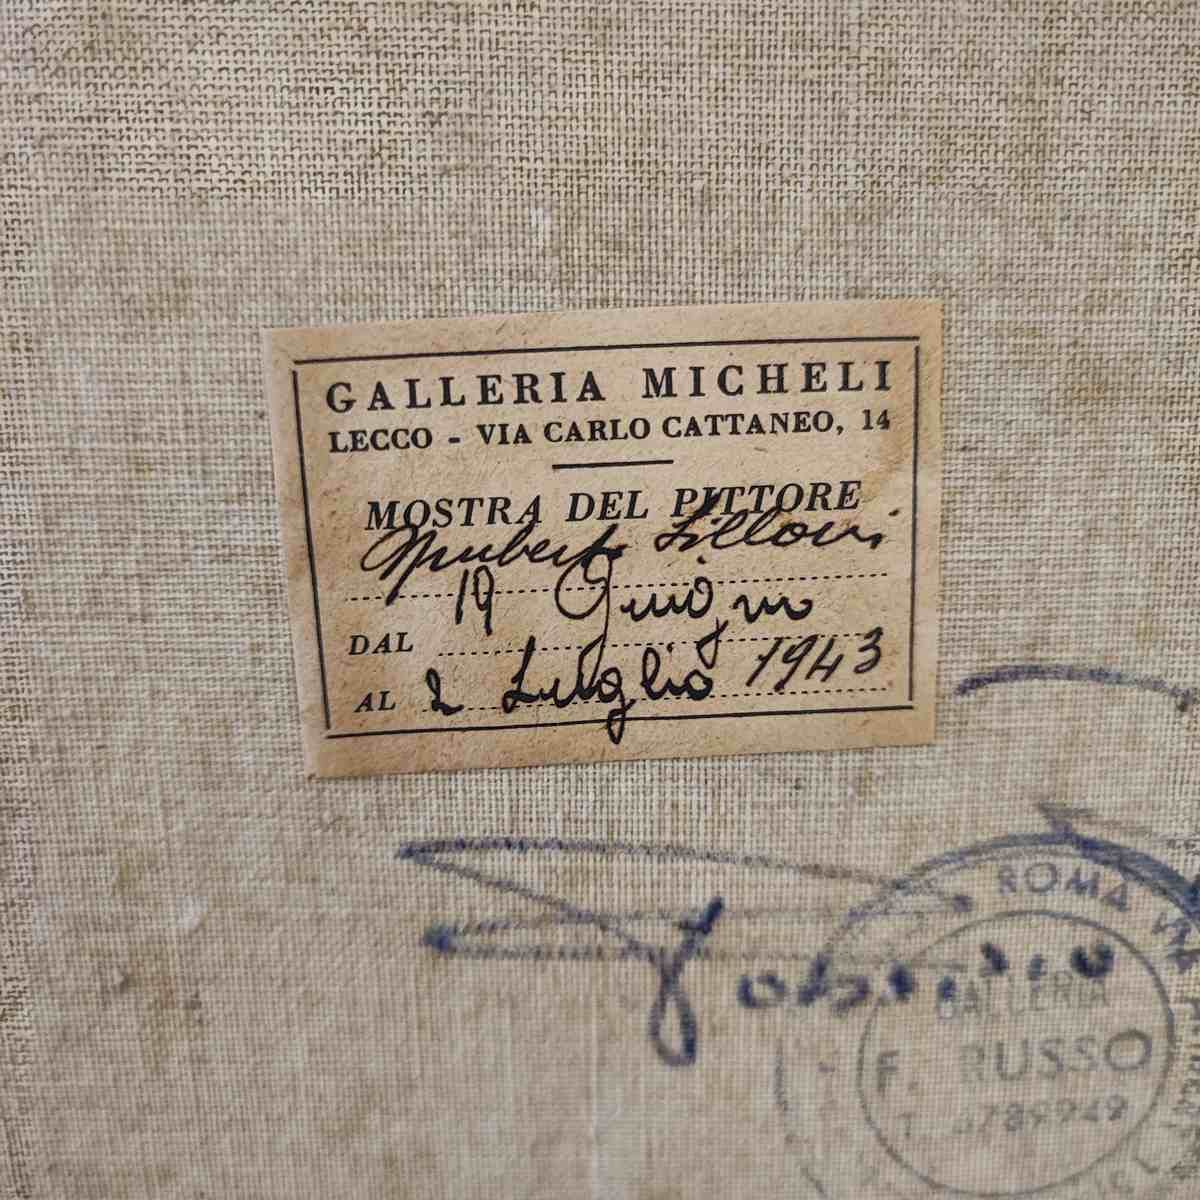 GALLERIA MICHELI
LECCO - VIA CARLO CATTANEO, 14
MOSTRA DEL PITTORE
Umberto Lilloni
DAL 19 Giugno
AL 2 Luglio 1943
ROMA
GALLERIA
F. RUSSO
T. 6789949